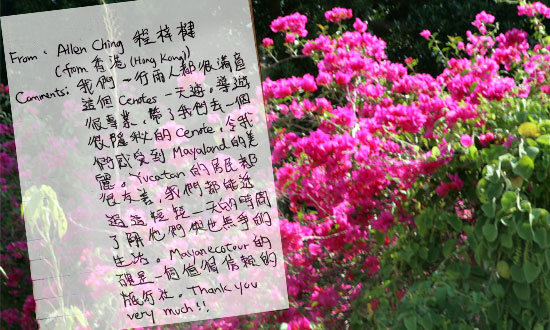 From: Allen Ching 程梓楗
(from 香港 (Hong Kong))
Comments: 我們一行兩人都很滿意
這個 Cenotes 一天遊。導遊
很專業,帶了我們去一個
很隱秘的 Cenote,令我
們感受到 Mayaland 的美
麗。Yucatan 的居民都
很友善,我們都能透
過這短短一天的時間
了解他們與世無爭的
生活。Mayanecotour 的
確是一個值得信賴的
旅行社。Thank you
very much!!